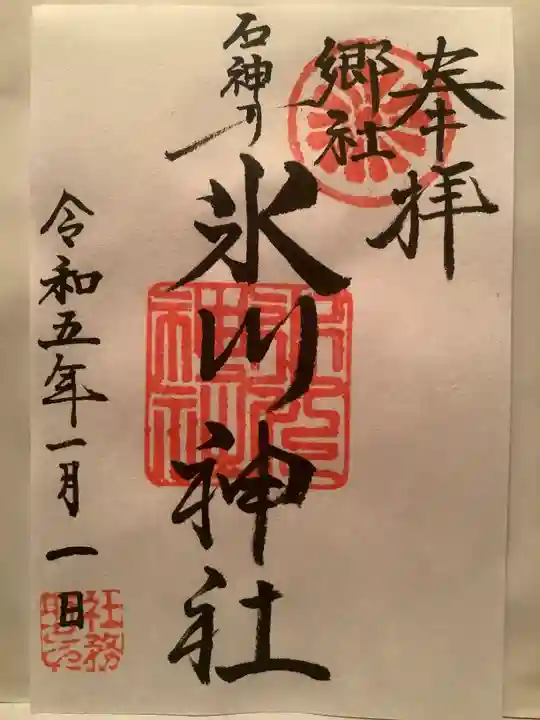 奉拝
郷社
石神井
氷川神社
令和五年一月一日
氷川
神社
社務